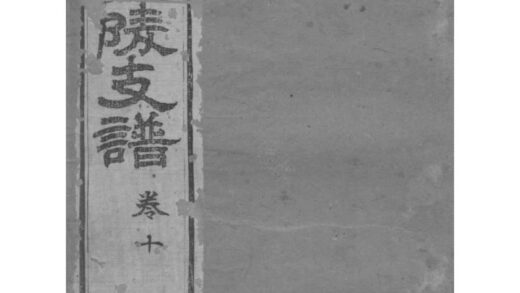 陵支譜
卷十